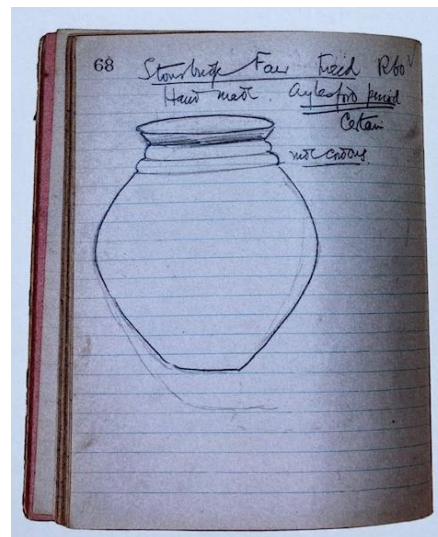 68 Stourbridge Fair Field R60
Hand made. Aylesford period
Certain
not cordons.